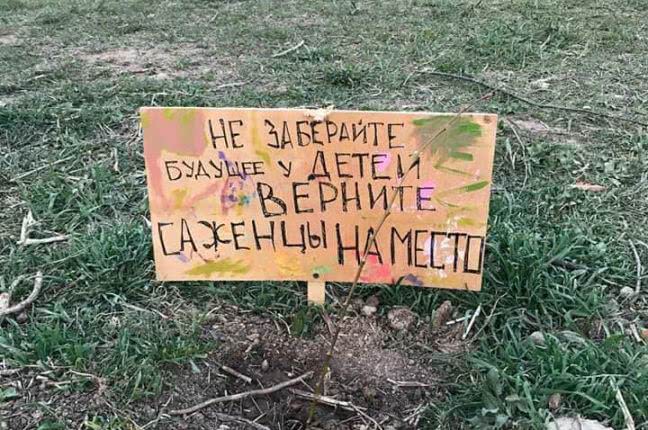 НЕ ЗАБЕРАЙТЕ
БУДУЩЕЕ У ДЕТЕЙ
ВЕРНИТЕ
САЖЕНЦЫ НА МЕСТО